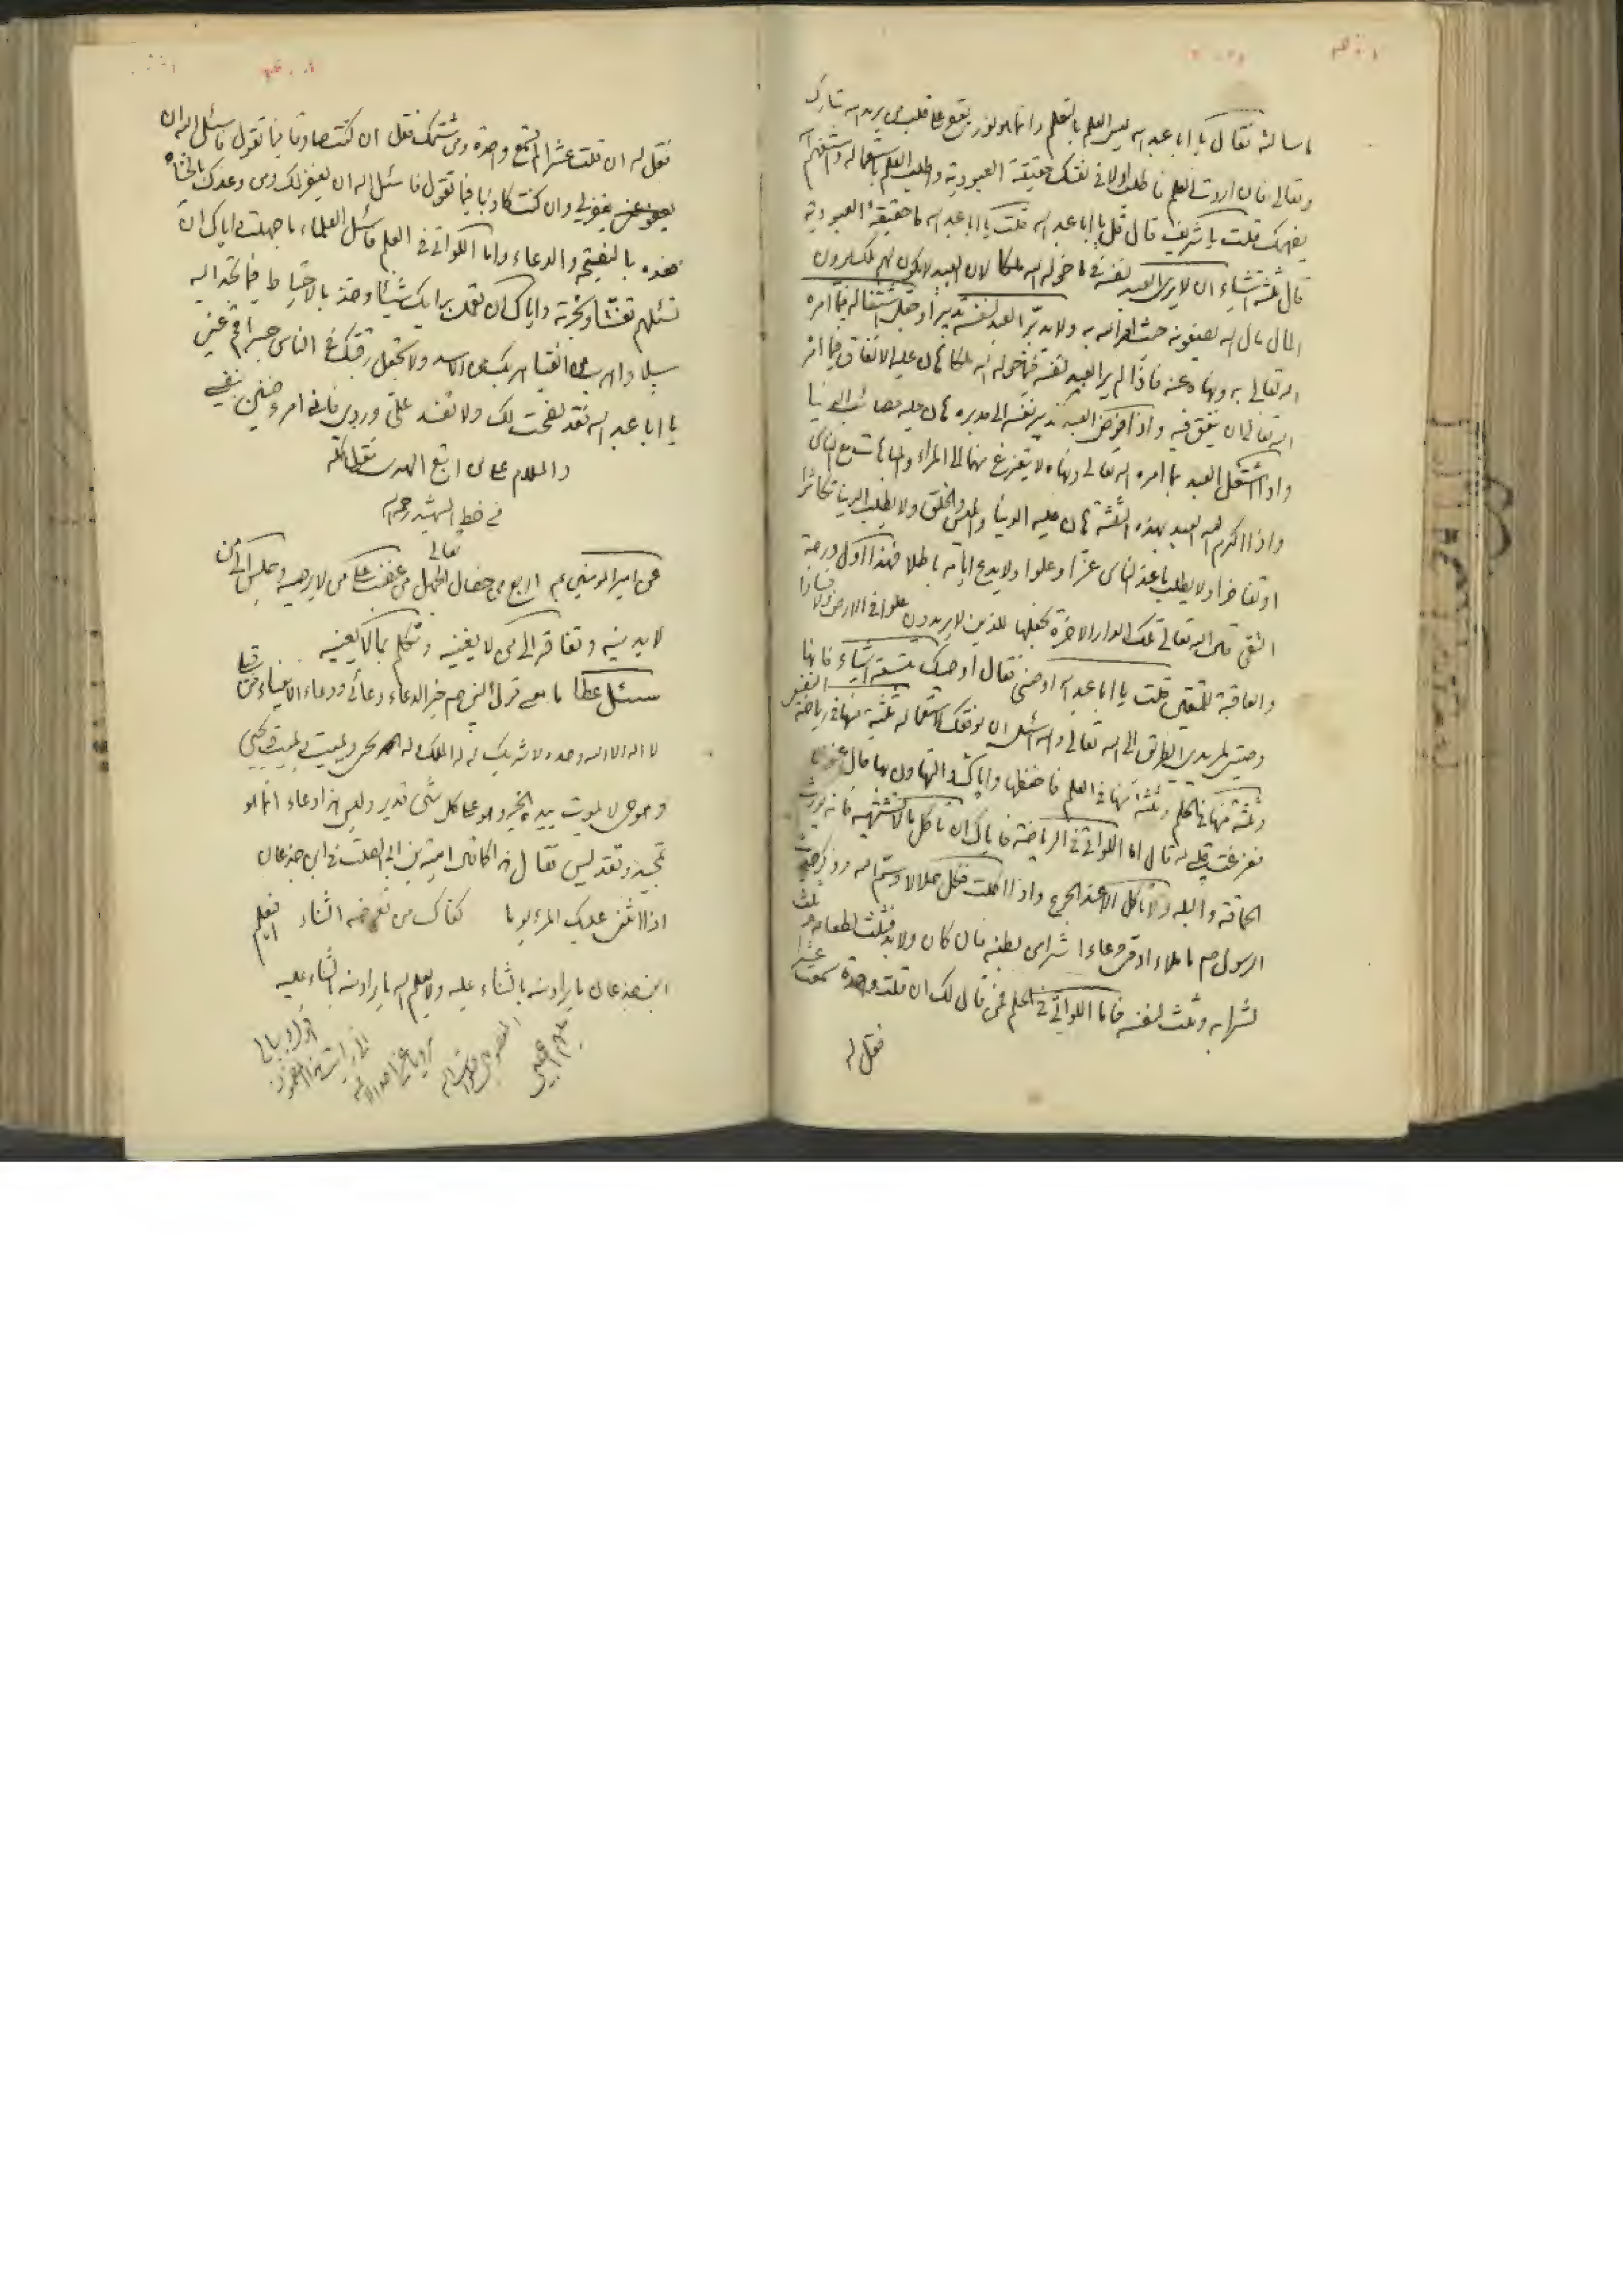 ما سالته فقال يا ابا عبد الله ليس العلم بالتعلم وانما هو نور يقع على قلب من يريد الله تبارك
وتعالى فان اردت العلم فاطلب اولا فى نفسك حقيقة العبودية واطلب العلم باستعماله واستفهم الله
يفهمك قلت يا شريف قال قل يا ابا عبد الله قلت يا ابا عبد الله ما حقيقة العبودية
قال ثلثة اشياء ان لا يرى العبد لنفسه فى ما خوله الله ملكا لان العبيد لا يكون لهم ملك يرون
المال مال الله يضعونه حيث امر الله به ولا يدبر العبد لنفسه تدبيرا وجعل اشتغاله فيما امره
الله تعالى به ونهاه عنه فاذا لم ير العبد لنفسه فيما خوله الله ملكا هان عليه الانفاق فيما امر
الله تعالى ان ينفق فيه واذا فوض العبد تدبير نفسه الى مدبره هان عليه مصائب الدنيا
واذا اشتغل العبد بما امره الله تعالى ونهاه لا يتفرغ منهما الى المراء والمباهات مع الناس
واذا اكرم الله العبد بهذه الثلثة هان عليه الدنيا وابليس والخلق ولا يطلب الدنيا تكاثرا
او تفاخرا ولا يطلب ما عند الناس عزا وعلوا ولا يدع ايامه باطلا فهذا اول درجة
التقى قال الله تعالى تلك الدار الاخرة نجعلها للذين لا يريدون علوا فى الارض ولا فسادا
والعاقبة للمتقين قلت يا ابا عبد الله اوصنى فقال اوصيك بتسعة اشياء فانها
وصيتى لمريدى الطريق الى الله تعالى والله اسئل ان يوفقك لاستعماله ثلثة منها فى رياضة النفس
وثلثة منها فى الحلم وثلثة منها فى العلم فاحفظها واياك والتهاون بها قال عنوان
ففرغت قلبى له قال اما اللواتى فى الرياضة فاياك ان تاكل ما لا تشتهيه فانه يورث
الحماقة والبله ولا تاكل الا عند الجوع واذا اكلت فكل حلالا وسم الله وذكر حديث
الرسول صم ما ملاء ادمى وعاء اشر من بطنه فان كان ولابد فثلث لطعامه وثلث
لشرابه وثلث لنفسه فاما اللواتى فى الحلم فمن قال لك ان قلت واحدة سمعت عشرا
فقل له
فقل له ان قلت عشرا لم تسمع واحدة ومن شتمك فقل ان كنت صادقا فيما تقول فاسئل الله ان
يغفر لى وان كنت كاذبا فيما تقول فاسئل الله ان يغفر لك ومن وعدك بالخناء
فعده بالنصيحة والدعاء واما اللواتى فى العلم فاسئل العلماء ما جهلت واياك ان
تسئلهم تعنتا وتجربة واياك ان تعمل برايك شيئا وخذ بالاحتياط فيما تجد اليه
سبيلا واهرب من الفتيا هربك من الاسد ولا تجعل رقبتك للناس جسرا قم عنى
يا ابا عبد الله فقد نصحت لك ولا تفسد على وردى فانى امرء ضنين بنفسى
والسلام على من اتبع الهدى
من خط الشهيد رحمه الله
تعالى
عن امير المؤمنين عم اربع من خصال الجهل من غضب على من لا يرضيه وجلس الى من
لا يدنيه وتفاقر الى من لا يغنيه وتكلم بما لا يعنيه
سئل عطا ما معنى قول النبى صم خير الدعاء دعائى ودعاء الانبياء من قبلى
لا اله الا الله وحده لا شريك له له الملك وله الحمد يحيى ويميت ويميت ويحيى
وهو حى لا يموت بيده الخير وهو على كل شى قدير وليس هذا دعاء انما هو
تمجيد وتقديس فقال هذا كما قال امية بن ابى الصلت فى ابن جدعان
اذا اثنى عليك المرء يوما كفاك من تعرضه الثناء افيعلم
ابن جدعان ما يراد منه بالثناء عليه ولا يعلم الله ما يراد منه بالثناء عليه